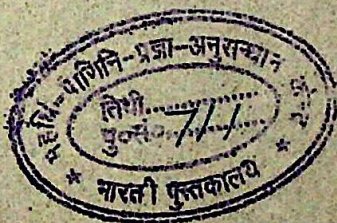 महर्षि-पाणिनि-प्रज्ञा-अनुसन्धान
तिथी..............
पु०सं० 711
* भारती पुस्तकालय *